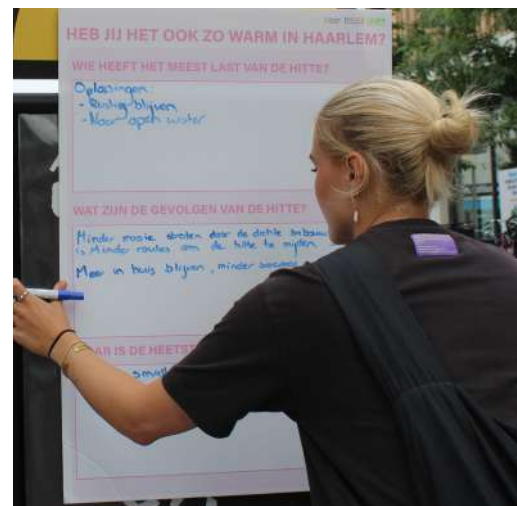 HEB JIJ HET OOK ZO WARM IN HAARLEM?
WIE HEEFT HET MEEST LAST VAN DE HITTE?
Oplossingen:
- Rustig blijven
- Naar open water
WAT ZIJN DE GEVOLGEN VAN DE HITTE?
Minder mooie straten door de dichte bebouw
is minder routes om de hitte te mijden
Meer in huis blijven, minder
AR IS DE HEETST
small